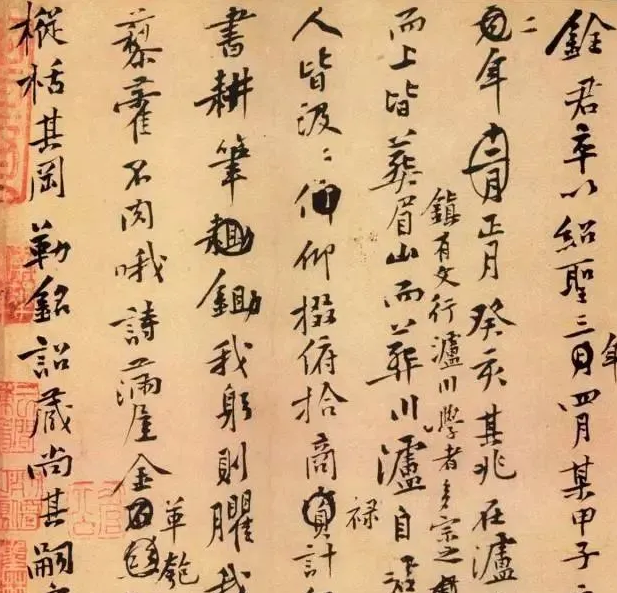 銓君卒以紹聖三年四月某甲子
二年正月癸亥其兆在瀘
鎮有文行瀘川學者多宗之
而上皆葬眉山而葬川瀘自
人皆汲〻仰掇俯拾商計
禄
書耕筆鋤我躬則臞我
藜藿不肉哦詩滿屋金
單瓢
樅栝其岡勒銘詔藏尚其嗣